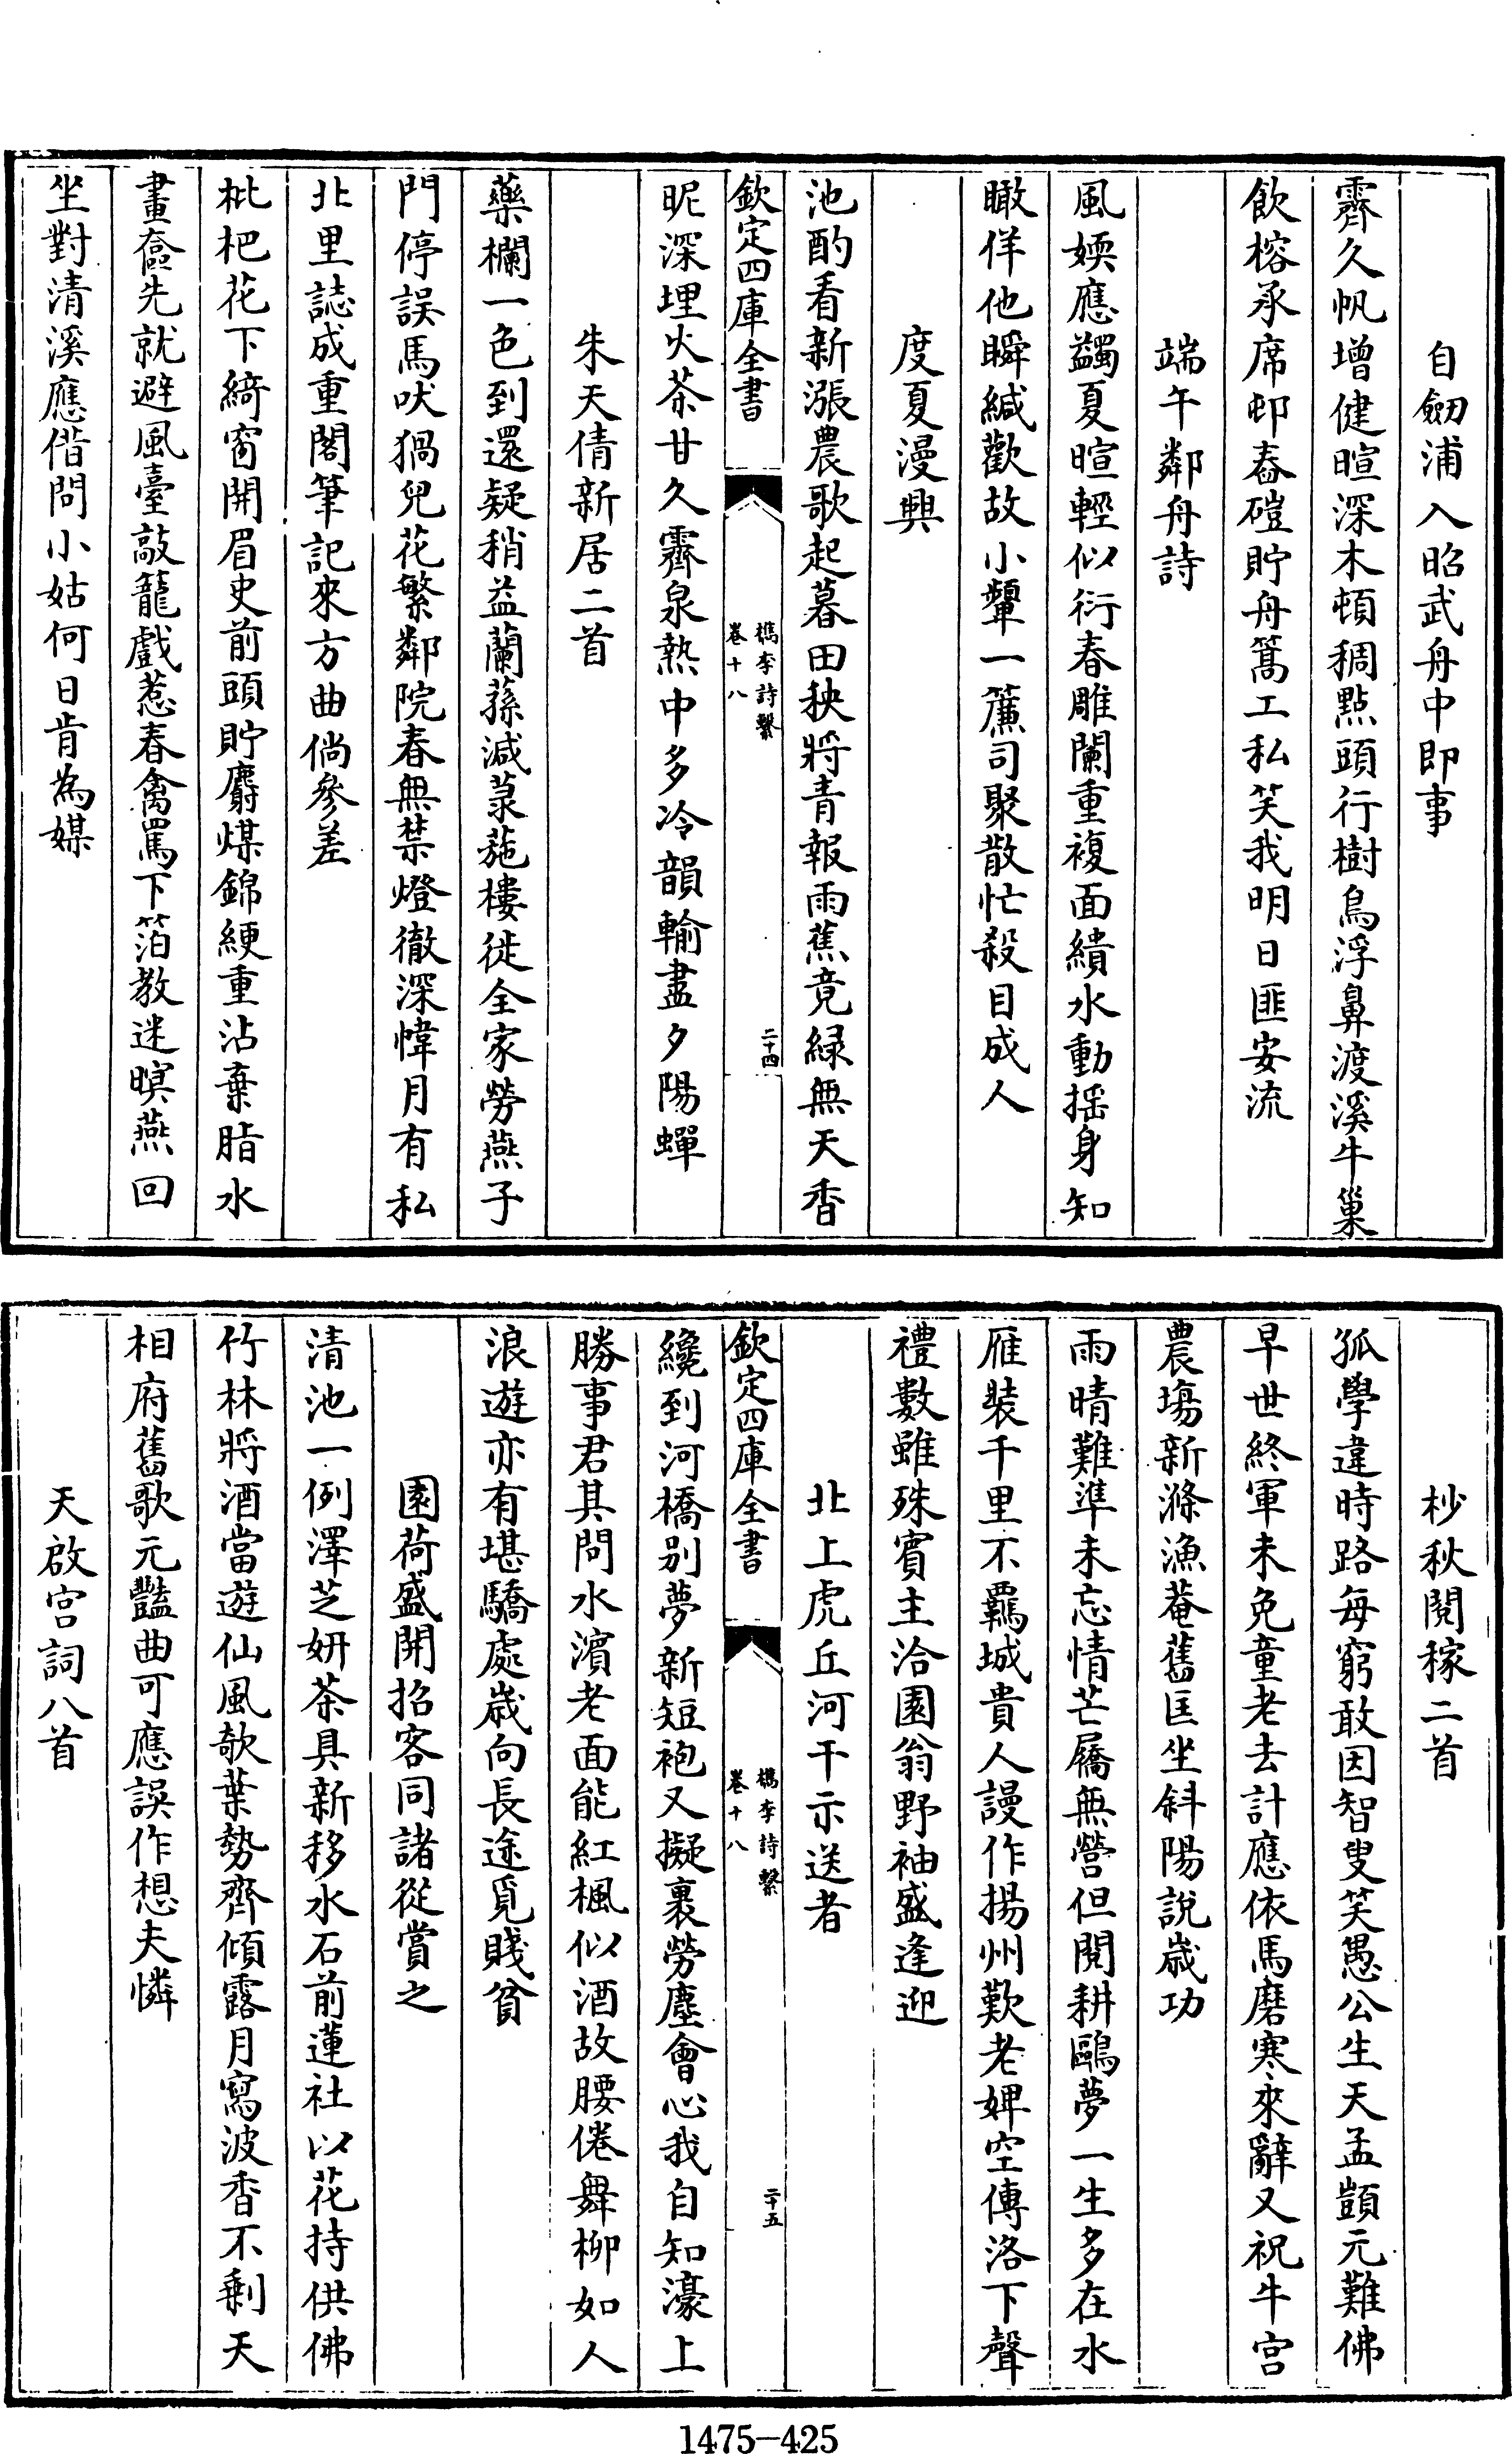 自劒浦入昭武舟中即事
霽久帆增健暄深木頓稠㸃頭行樹鳥浮鼻渡溪牛巢
飲榕承席邨舂磑貯舟篙工私笑我明日匪安流
端午鄰舟詩
風㛄應蠲夏暄輕似衍春雕闌重複面繢水動摇身知
瞰佯他瞬緘歡故小顰一簾司聚散忙殺目成人
度夏漫興
池酌看新漲農歌起暮田秧將青報雨蕉竟緑無天香
欽定四庫全書
檇李詩繫
卷十八
二十四
昵深埋火茶甘久霽泉熱中多冷韻輸盡夕陽蟬
朱天倩新居二首
藥欄一色到還疑稍益蘭蓀減菉葹樓徙全家勞燕子
門停誤馬吠猧兒花繁鄰院春無禁燈徹深幃月有私
北里誌成重閣筆記來方曲倘參差
枇杷花下綺窗開眉史前頭貯麝煤錦綆重沾棄脂水
畫奩先就避風臺敲籠戲惹春禽罵下箔教迷暝燕回
坐對清溪應借問小姑何日肯為媒
杪秋閱稼二首
孤學違時路每窮敢因智叟笑愚公生天孟顗元難佛
早世終軍未免童老去計應依馬磨寒來辭又祝牛宫
農塲新滌漁菴舊匡坐斜陽說歲功
雨晴難準未忘情芒屩無營但閱耕鷗夢一生多在水
雁裝千里不羈城貴人謾作揚州歎老婢空傳洛下聲
禮數雖殊賓主洽園翁野袖盛逢迎
北上虎丘河干示送者
欽定四庫全書
檇李詩繫
卷十八
二十五
纔到河橋别夢新短袍又擬裹勞塵會心我自知濠上
勝事君其問水濱老面能紅楓似酒故腰倦舞柳如人
浪遊亦有堪驕處歲向長途覓賤貧
園荷盛開招客同諸從賞之
清池一例澤芝妍茶具新移水石前蓮社以花持供佛
竹林將酒當遊仙風欹葉勢齊傾露月寫波香不剩天
相府舊歌元豔曲可應誤作想夫憐
天啟宫詞八首
1475-425